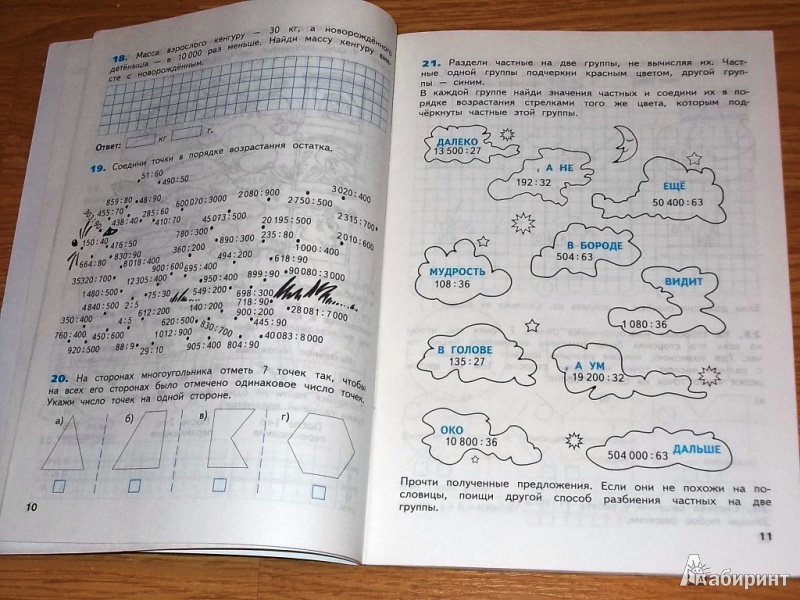 18. Масса взрослого кенгуру — 30 кг, а новорождённого
детёныша — в 10 000 раз меньше. Найди массу кенгуру
сте с новорождённым.
Ответ: кг г.
19. Соедини точки в порядке возрастания остатка.
51:60
490:50
859:80 48:90 600 070:3000 2 080:900 3 020:400
455:70 285:60 2 750:500
438:40 410:70 45 073:500 20 195:500 2 315:700
150:40 476:50 780:300 890:300 235:80 2 010:600
664:80 830:90 8 018:400 360:200 494:200 1 000:400
900:600 695:400 618:90
35320:700 12 305:400 950:400 899:90 90 080:3 000
1480:500 75:30 549:200 698:300
4 840:500 2:5 612:200 140:200 718:90 28 081:7 000
350:400 4:5 620:500 900:200 445:90
760:400 450:600 1 012:900 830:700 40 083:8 000
920:500 88:9 29:10 905:400 804:90
20. На сторонах многоугольника отметь 7 точек так, чтобы
на всех его сторонах было отмечено одинаковое число точек.
Укажи число точек на одной стороне.
а) б) в) г)
10
21. Раздели частные на две группы, не вычисляя их. Част-
ные одной группы подчеркни красным цветом, другой груп-
пы — синим.
В каждой группе найди значения частных и соедини их в по-
рядке возрастания стрелками того же цвета, которым под-
чёркнуты частные этой группы.
ДАЛЕКО
13 500:27
, А НЕ
192:32
ЕЩЁ
50 400:63
В БОРОДЕ
504:63
МУДРОСТЬ
108:36
ВИДИТ
1 080:36
В ГОЛОВЕ
135:27
, А УМ
19 200:32
ОКО
10 800:36
ДАЛЬШЕ
504 000:63
Прочти полученные предложения. Если они не похожи на по-
словицы, поищи другой способ разбиения частных на две
группы.
11
Лабиринт